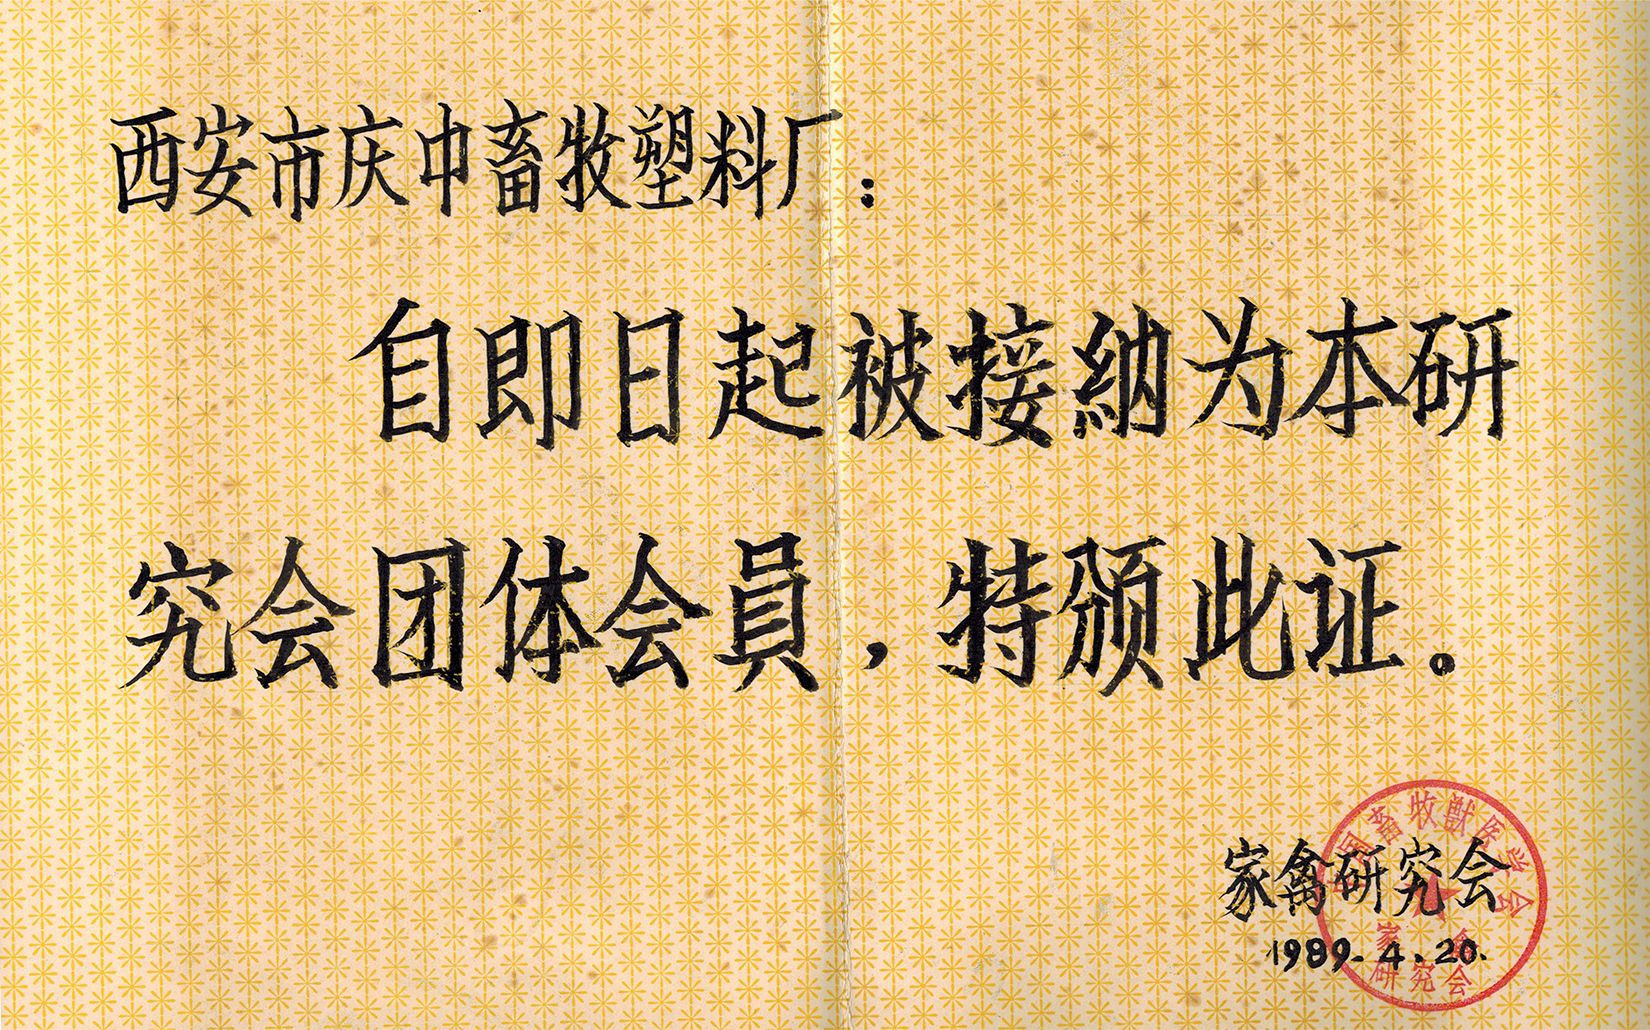 西安市庆中畜牧塑料厂：
自即日起被接納为本研
究会团体会員，特颁此证。
家禽研究会
1989.4.20.
国畜牧獸医学会
家禽
研究会